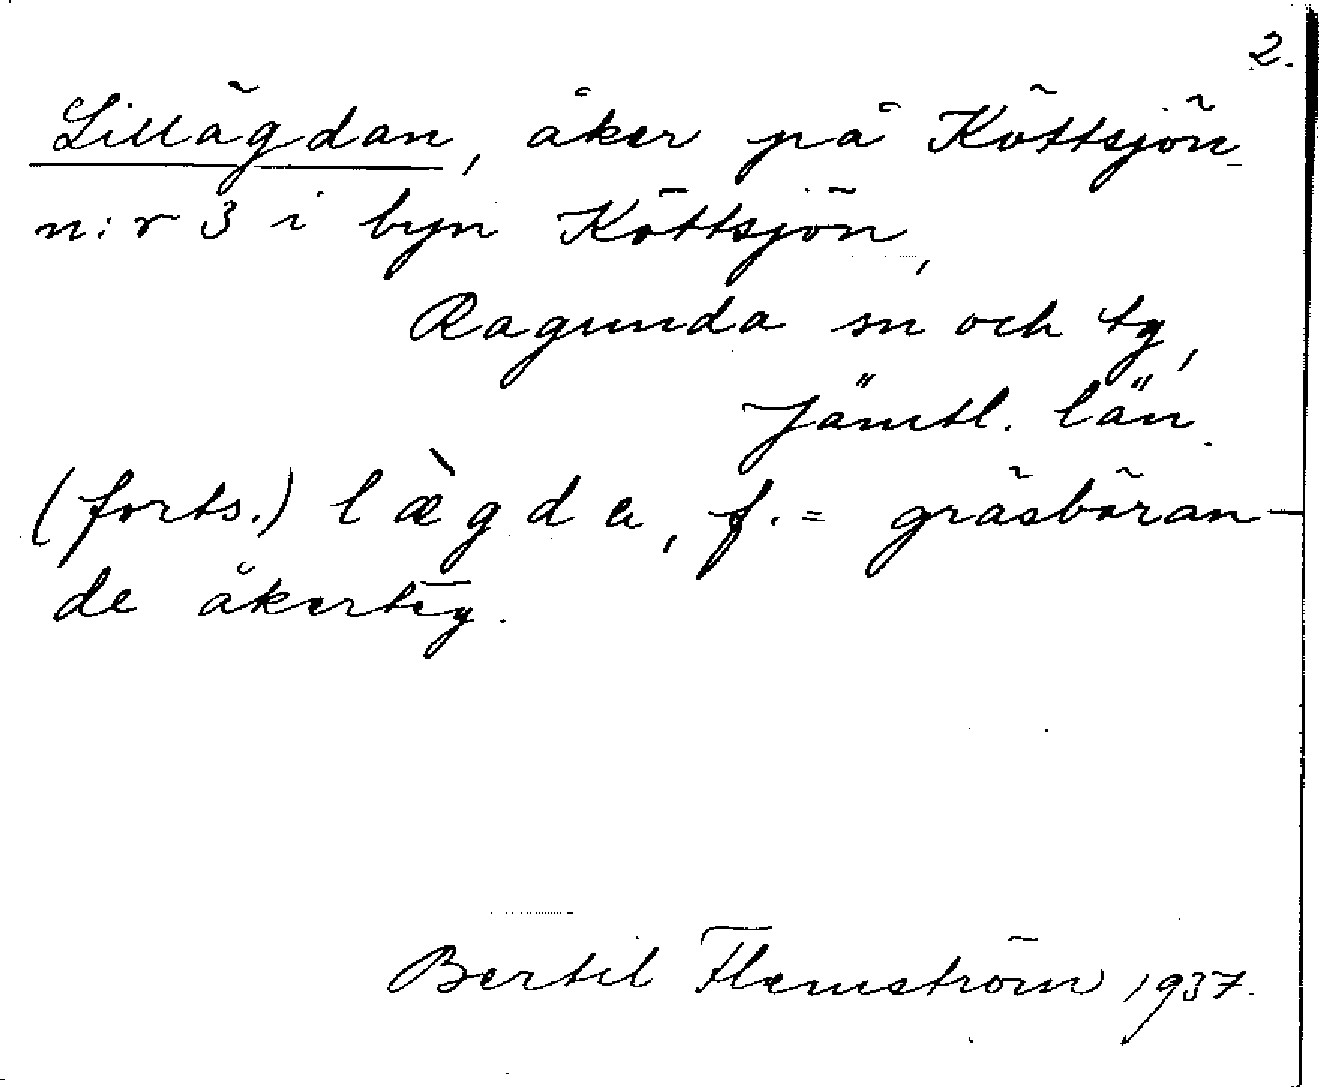 2.
Lillägdan, åker på Köttsjön
n:r 3 i byn Köttsjön,
Ragunda sn och tg,
Jämtl. län.
(forts.) læ̀gda, f. = gräsbäran-
de åkerteg.
Bertil Flemström 1937.